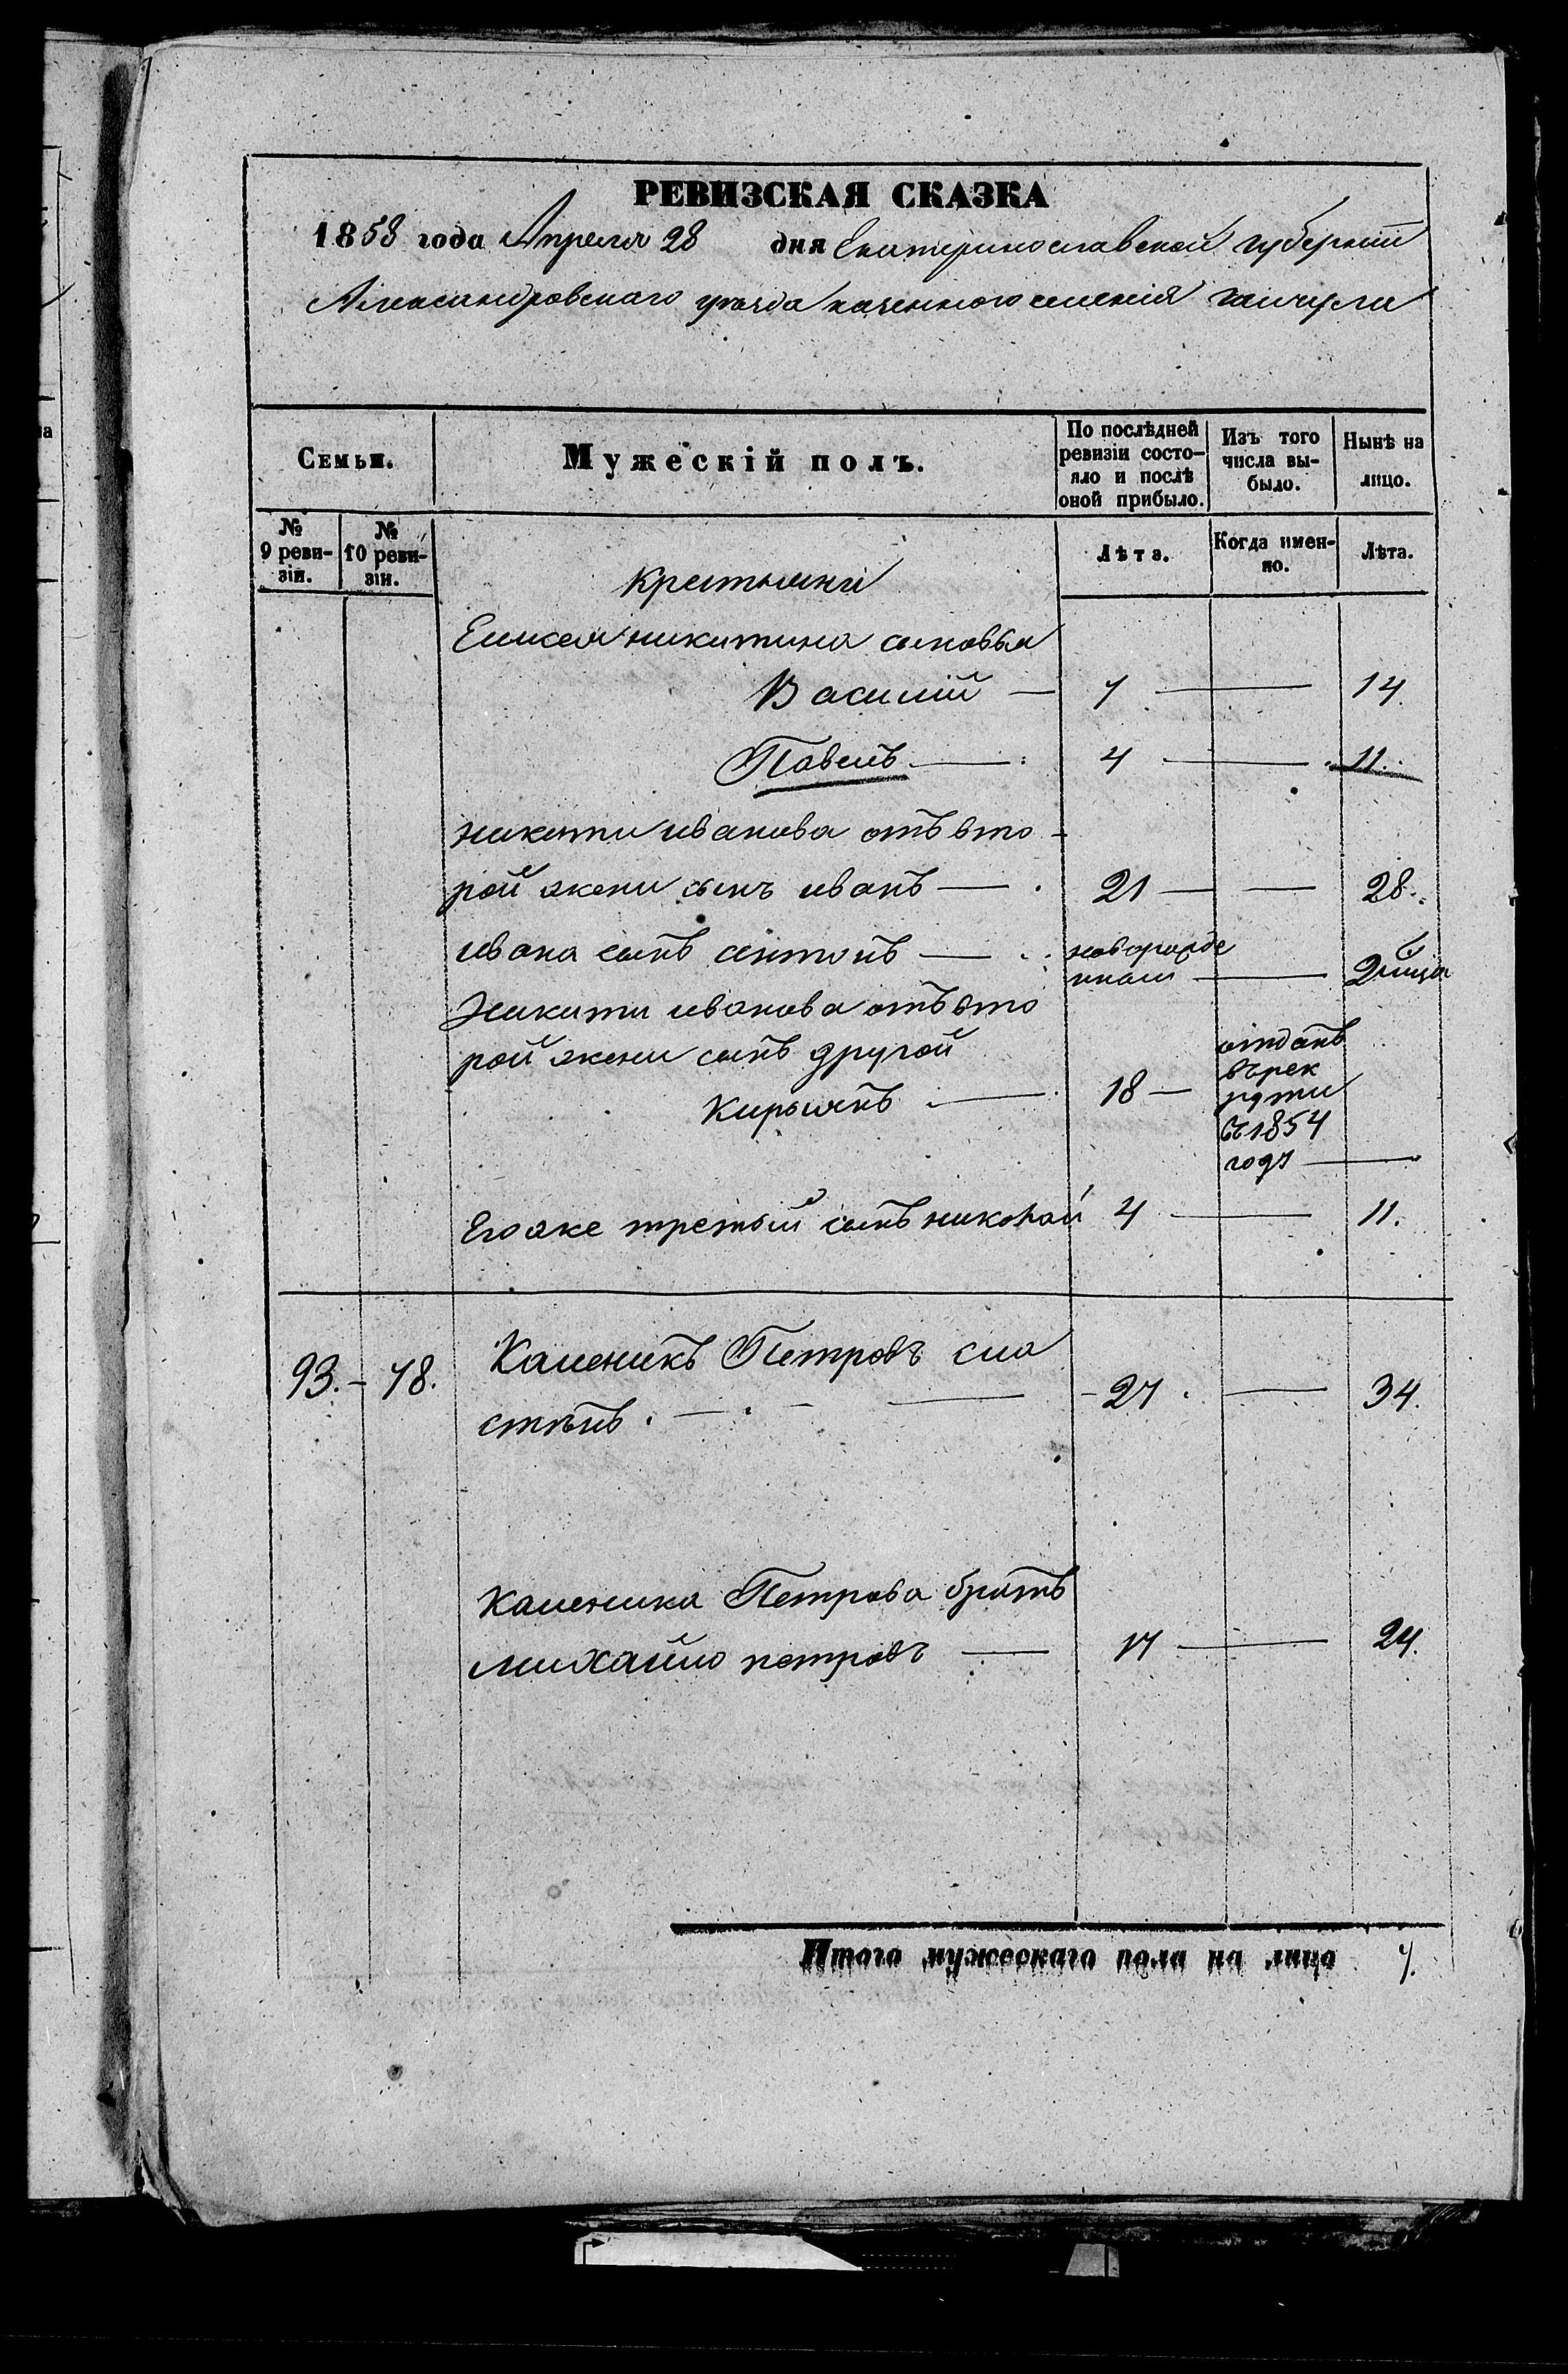 РЕВИЗСКАЯ СКАЗКА
1858 года Апреля 28 дня Екатеринославской губернии
Александровского уезда казенного селения Гайчула
Семьи.
Мужескій полъ.
По послѣдней ревизіи состо-
яло и послѣ
оной прибыло.
Изъ того
числа вы-
было.
Нынѣ на
лицо.
№
9 реви-
зіи.
№
10 реви-
зіи.
Лѣта.
Когда имен-
но.
Лѣта.
Крестьяни
Елисея никитина сыновья
Василій — 7 — 14.
Павелъ — 4 — 11.
никити иванова отъ вто-
рой жени сынъ иванъ — 21 — 28.
ивана сынъ антонъ — новорожде
ннои — 2 мѣсца
Никити иванова отъ вто
рой жени сынъ другой
Кирьянъ — 18 —
отданъ
въ рек
рути
въ 1854
году —
Его же третый сынъ николай 4 — 11.
93. - 78. Каленикъ Петровъ сла
стѣнъ. — 27. — 34.
Каленика Петрова братъ
михайло петровъ — 17 — 24.
Итого мужескаго пола на лицо 7.